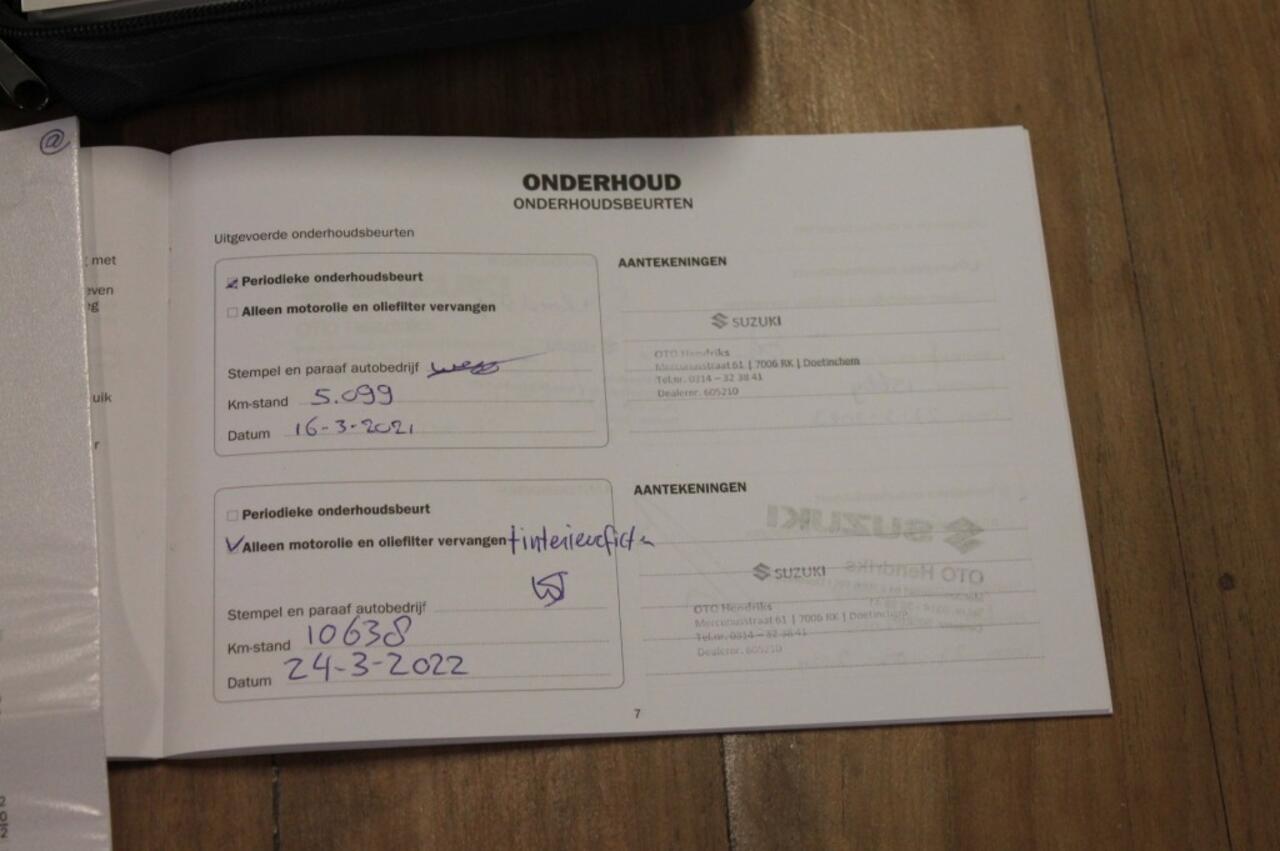 @
met
ONDERHOUD
ONDERHOUDSBEURTEN
Uitgevoerde onderhoudsbeurten
Periodieke onderhoudsbeurt
Alleen motorolie en oliefilter vervangen
Stempel en paraaf autobedrijf
Km-stand 5.099
Datum 16-3-2021
AANTEKENINGEN
SUZUKI
OTO Hendriks
Mercuriusstraat 61 | 7006 RK | Doetinchem
Tel.nr. 0314 – 32 38 41
Dealernr. 605210
Periodieke onderhoudsbeurt
Alleen motorolie en oliefilter vervangen
Stempel en paraaf autobedrijf
Km-stand 10638
Datum 24-3-2022
AANTEKENINGEN
SUZUKI
OTO Hendriks
Mercuriusstraat 61 | 7006 RK | Doetinchem
Tel.nr. 0314 – 32 38 41
Dealernr. 605210
7